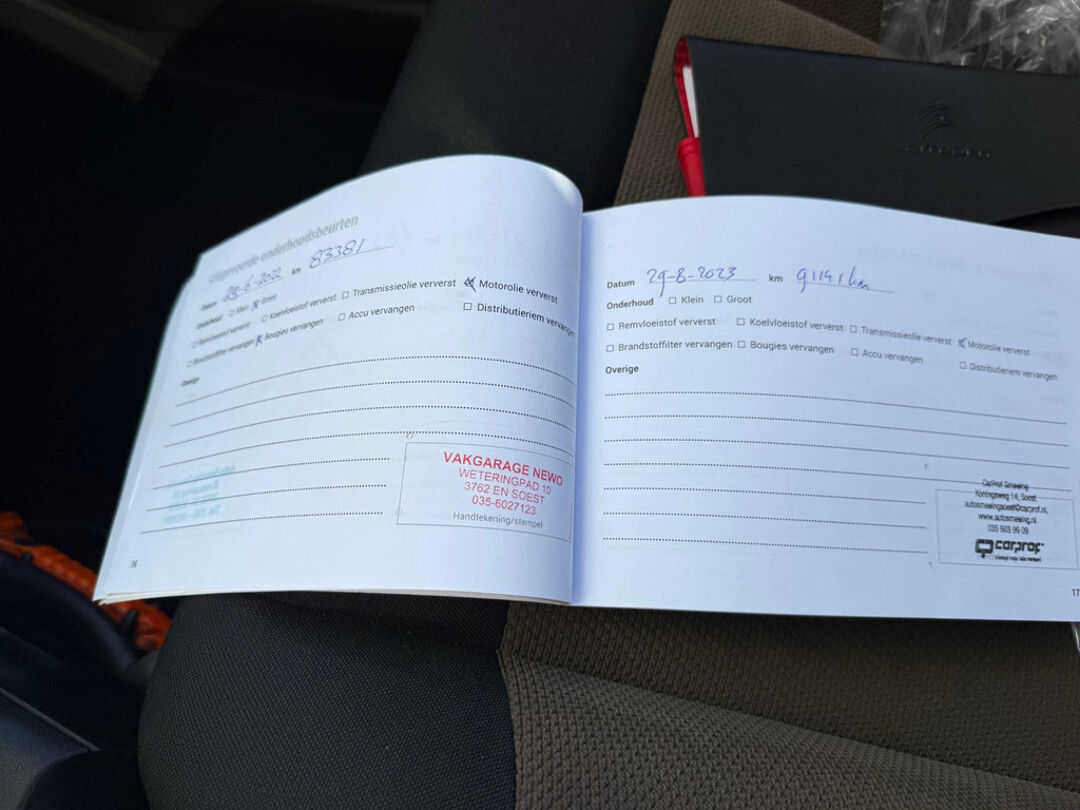 Uitgevoerde onderhoudsbeurten
Datum 23-6-2022 km 83381
Onderhoud Klein Groot
Remvloeistof ververst Koelvloeistof ververst Transmissieolie ververst Motorolie ververst
Brandstoffilter vervangen Bougies vervangen Accu vervangen Distributieriem vervangen
Overige
VAKGARAGE NEWO
WETERINGPAD 10
3762 EN SOEST
035-6027123
Handtekening/stempel
16
Datum 29-8-2023 km 91141 km
Onderhoud Klein Groot
Remvloeistof ververst Koelvloeistof ververst Transmissieolie ververst Motorolie ververst
Brandstoffilter vervangen Bougies vervangen Accu vervangen Distributieriem vervangen
Overige
CarProf Smeeing
Koningsweg 14, Soest
autosmeeingsoest@carprof.nl,
www.autosmeeing.nl
035 603 99 09
carprof
17